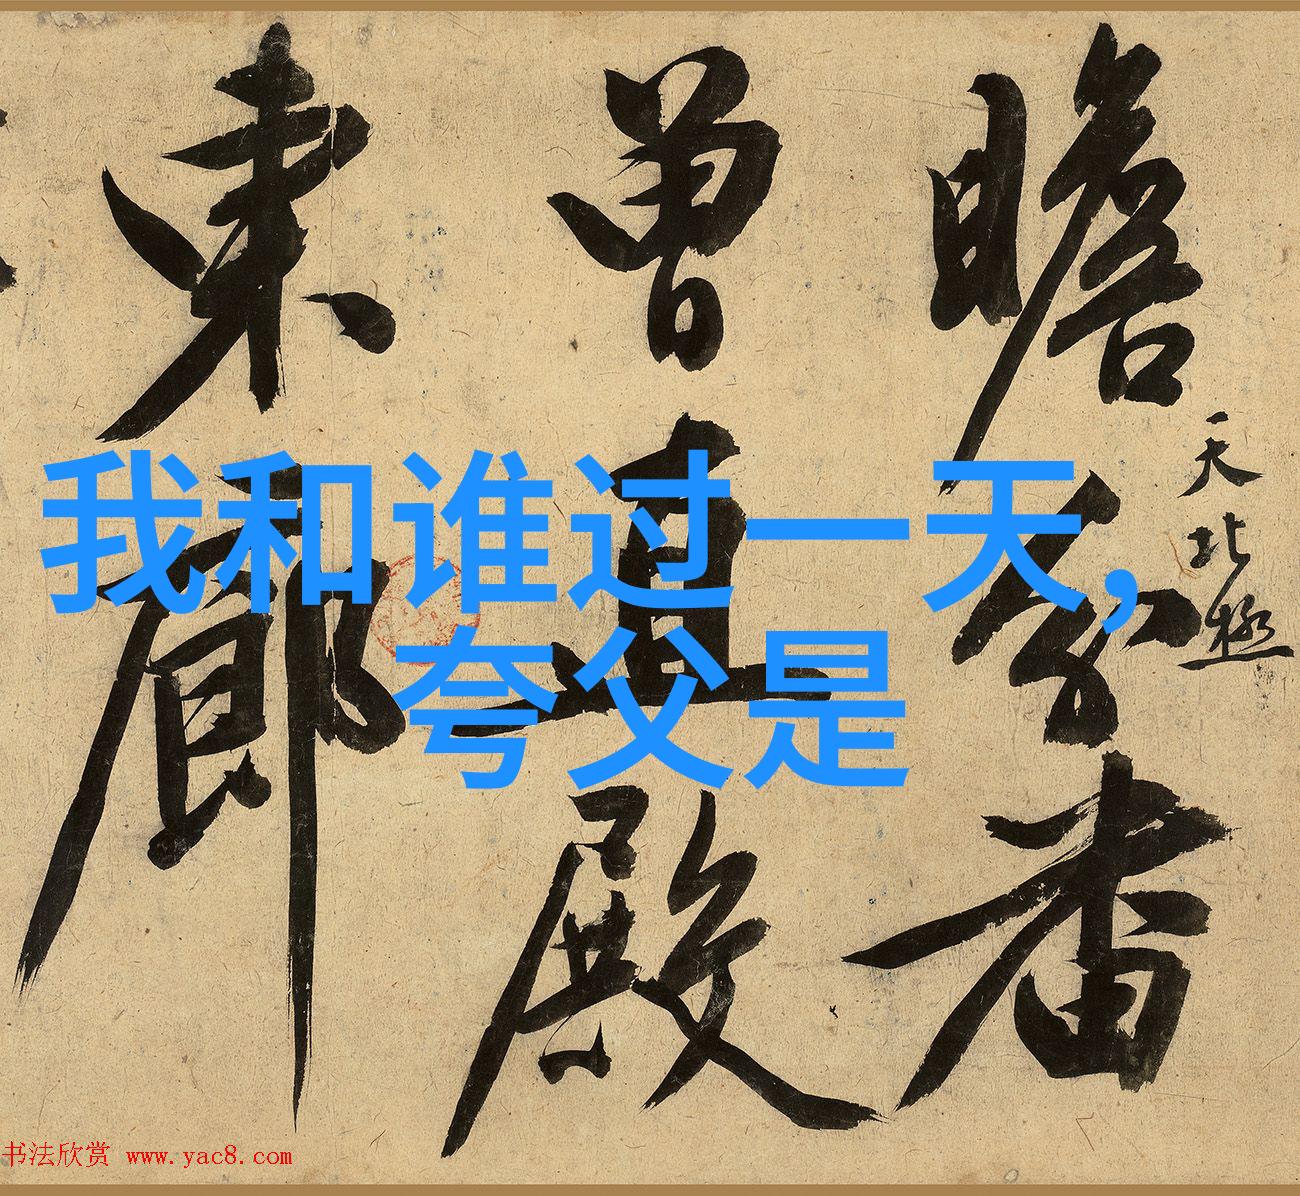 瞻分香
天北極
曾直殿
東廊
我和谁过一天,
夸父是
书法欣赏 www.yac8.com